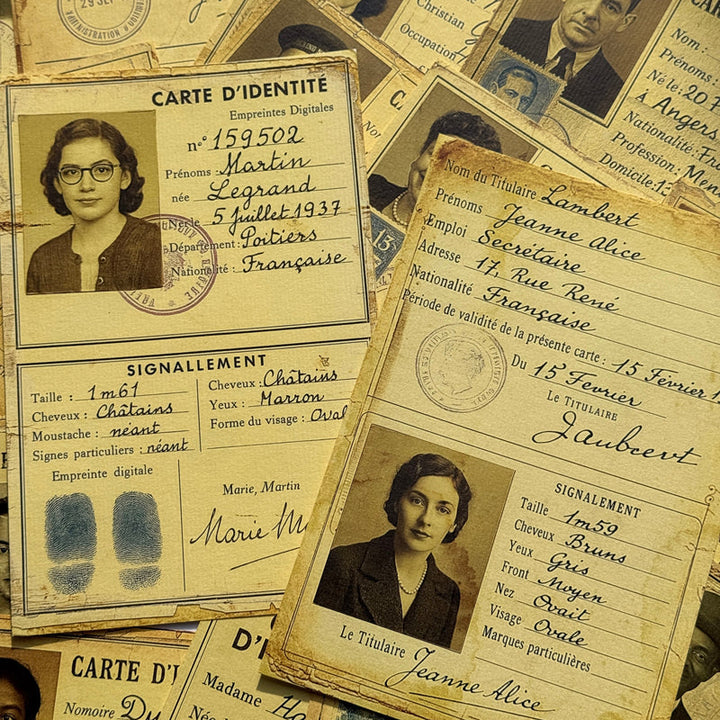 29 SEP
ADMINISTRATION
CARTE
Christian
Occupation
Nom:
Né le: 20
à Angers
Nationalité: Fr
Profession:
Domicile: 13
CARTE D'IDENTITÉ
Empreintes Digitales
n° 159502
Prénoms: Martin
née Legrand
5 juillet 1937
Département: Poitiers
Nationalité: Française
SIGNALLEMENT
Taille : 1m61
Cheveux : Châtains
Moustache : néant
Signes particuliers : néant
Cheveux : Châtains
Yeux : Marron
Forme du visage : Oval
Empreinte digitale
Marie, Martin
Marie M
13
Nom du Titulaire Lambert
Prénoms Jeanne Alice
Emploi Secrétaire
Adresse 17, Rue René
Nationalité Française
Période de validité de la présente carte: 15 Février 1
Du 15 Fevrier
Le Titulaire
Jaubcert
SIGNALEMENT
Taille 1m59
Cheveux Bruns
Yeux Gris
Front Moyen
Nez Ovait
Visage Ovale
Marques particulières
Le Titulaire Jeanne Alice
CARTE D'I
Nomoire Du
D'
Madame Ha